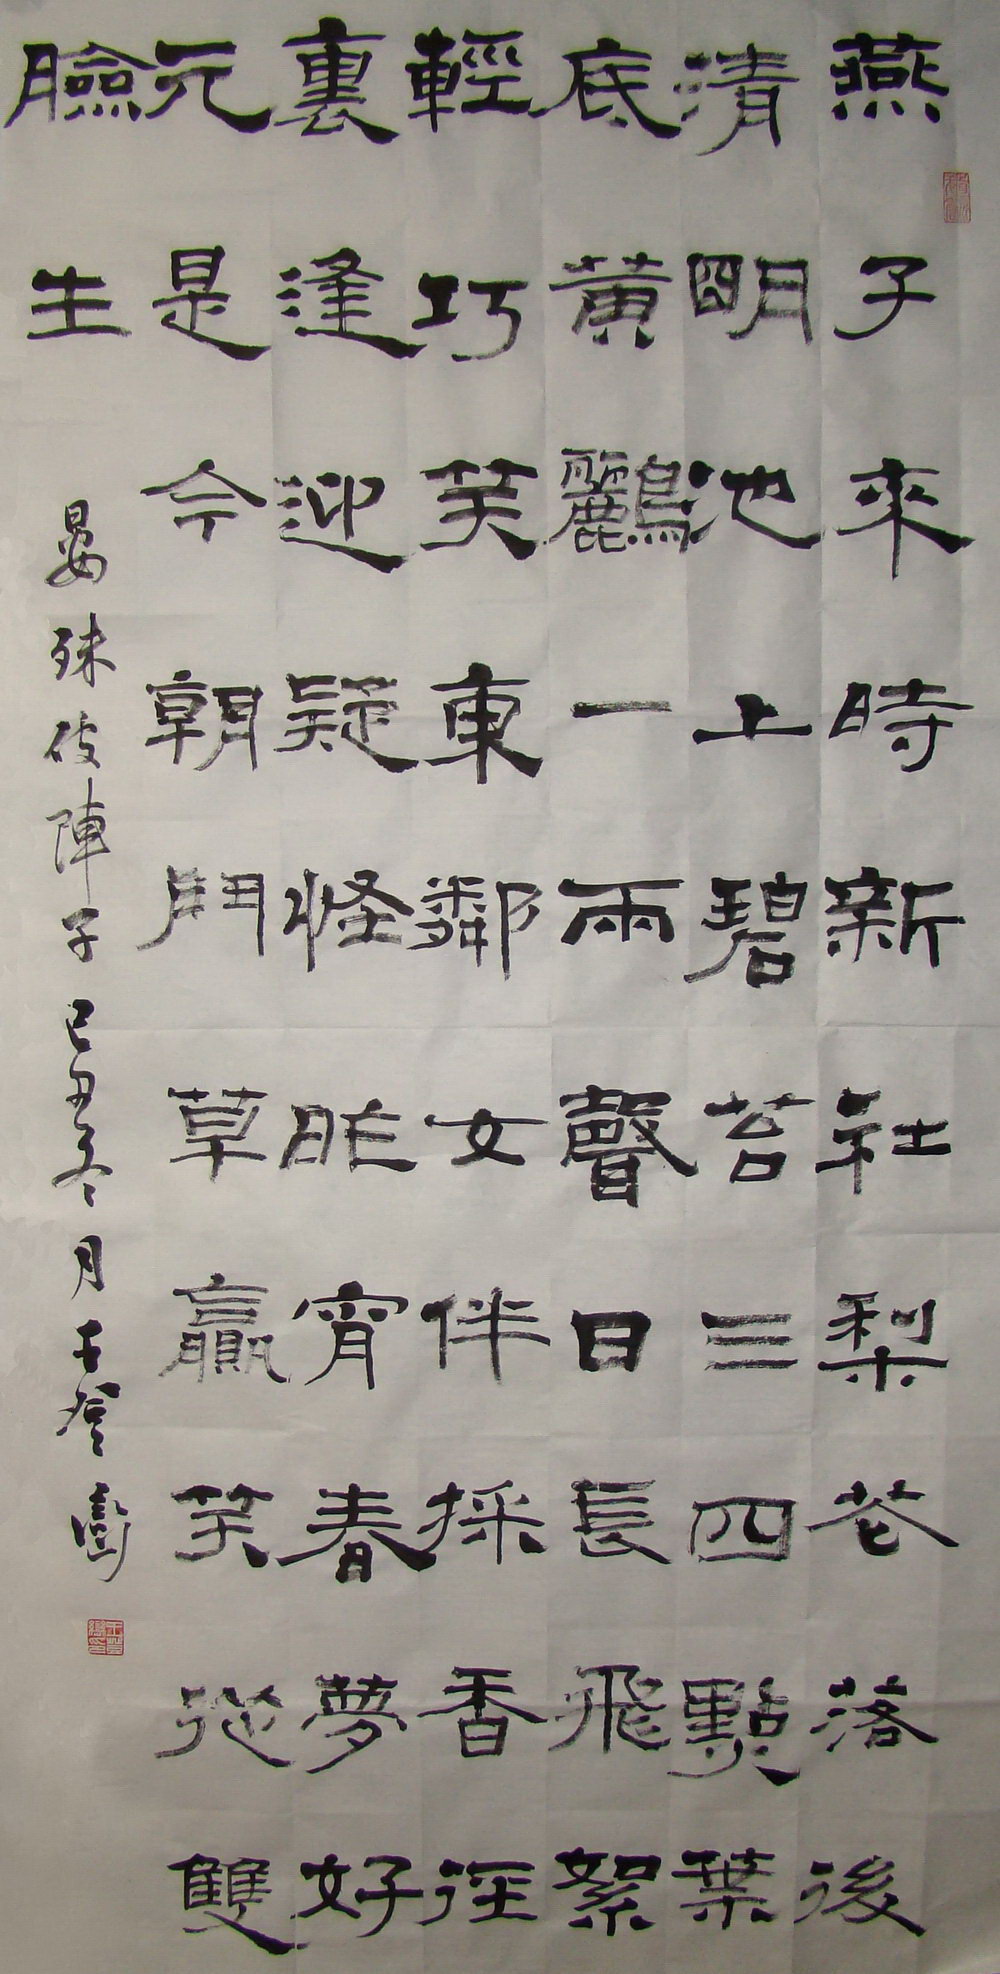 燕子來時新社梨花落後
清明池上碧苔三四點葉
底黄鸝一兩聲日長飛絮
輕巧笑東鄰女伴採香徑
裏逢迎疑怪昨宵春夢好
元是今朝鬥草贏笑從雙
臉生
晏殊破陣子己丑冬月王登